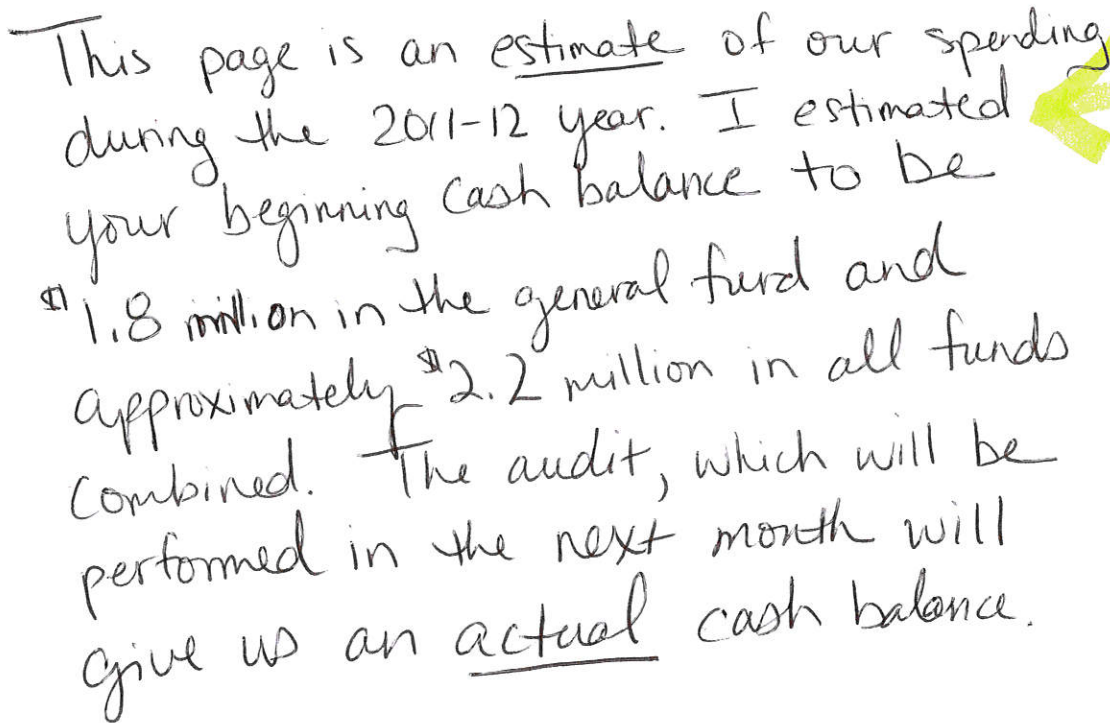 This page is an estimate of our spending
during the 2011-12 year. I estimated
your beginning cash balance to be
$1.8 million in the general fund and
approximately $2.2 million in all funds
combined. The audit, which will be
performed in the next month will
give us an actual cash balance.